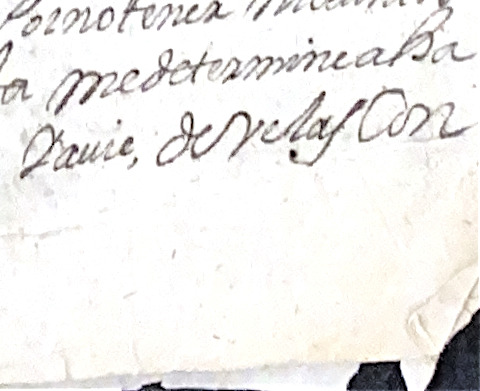 Por no tener
ta me determine a ha
de velas Con